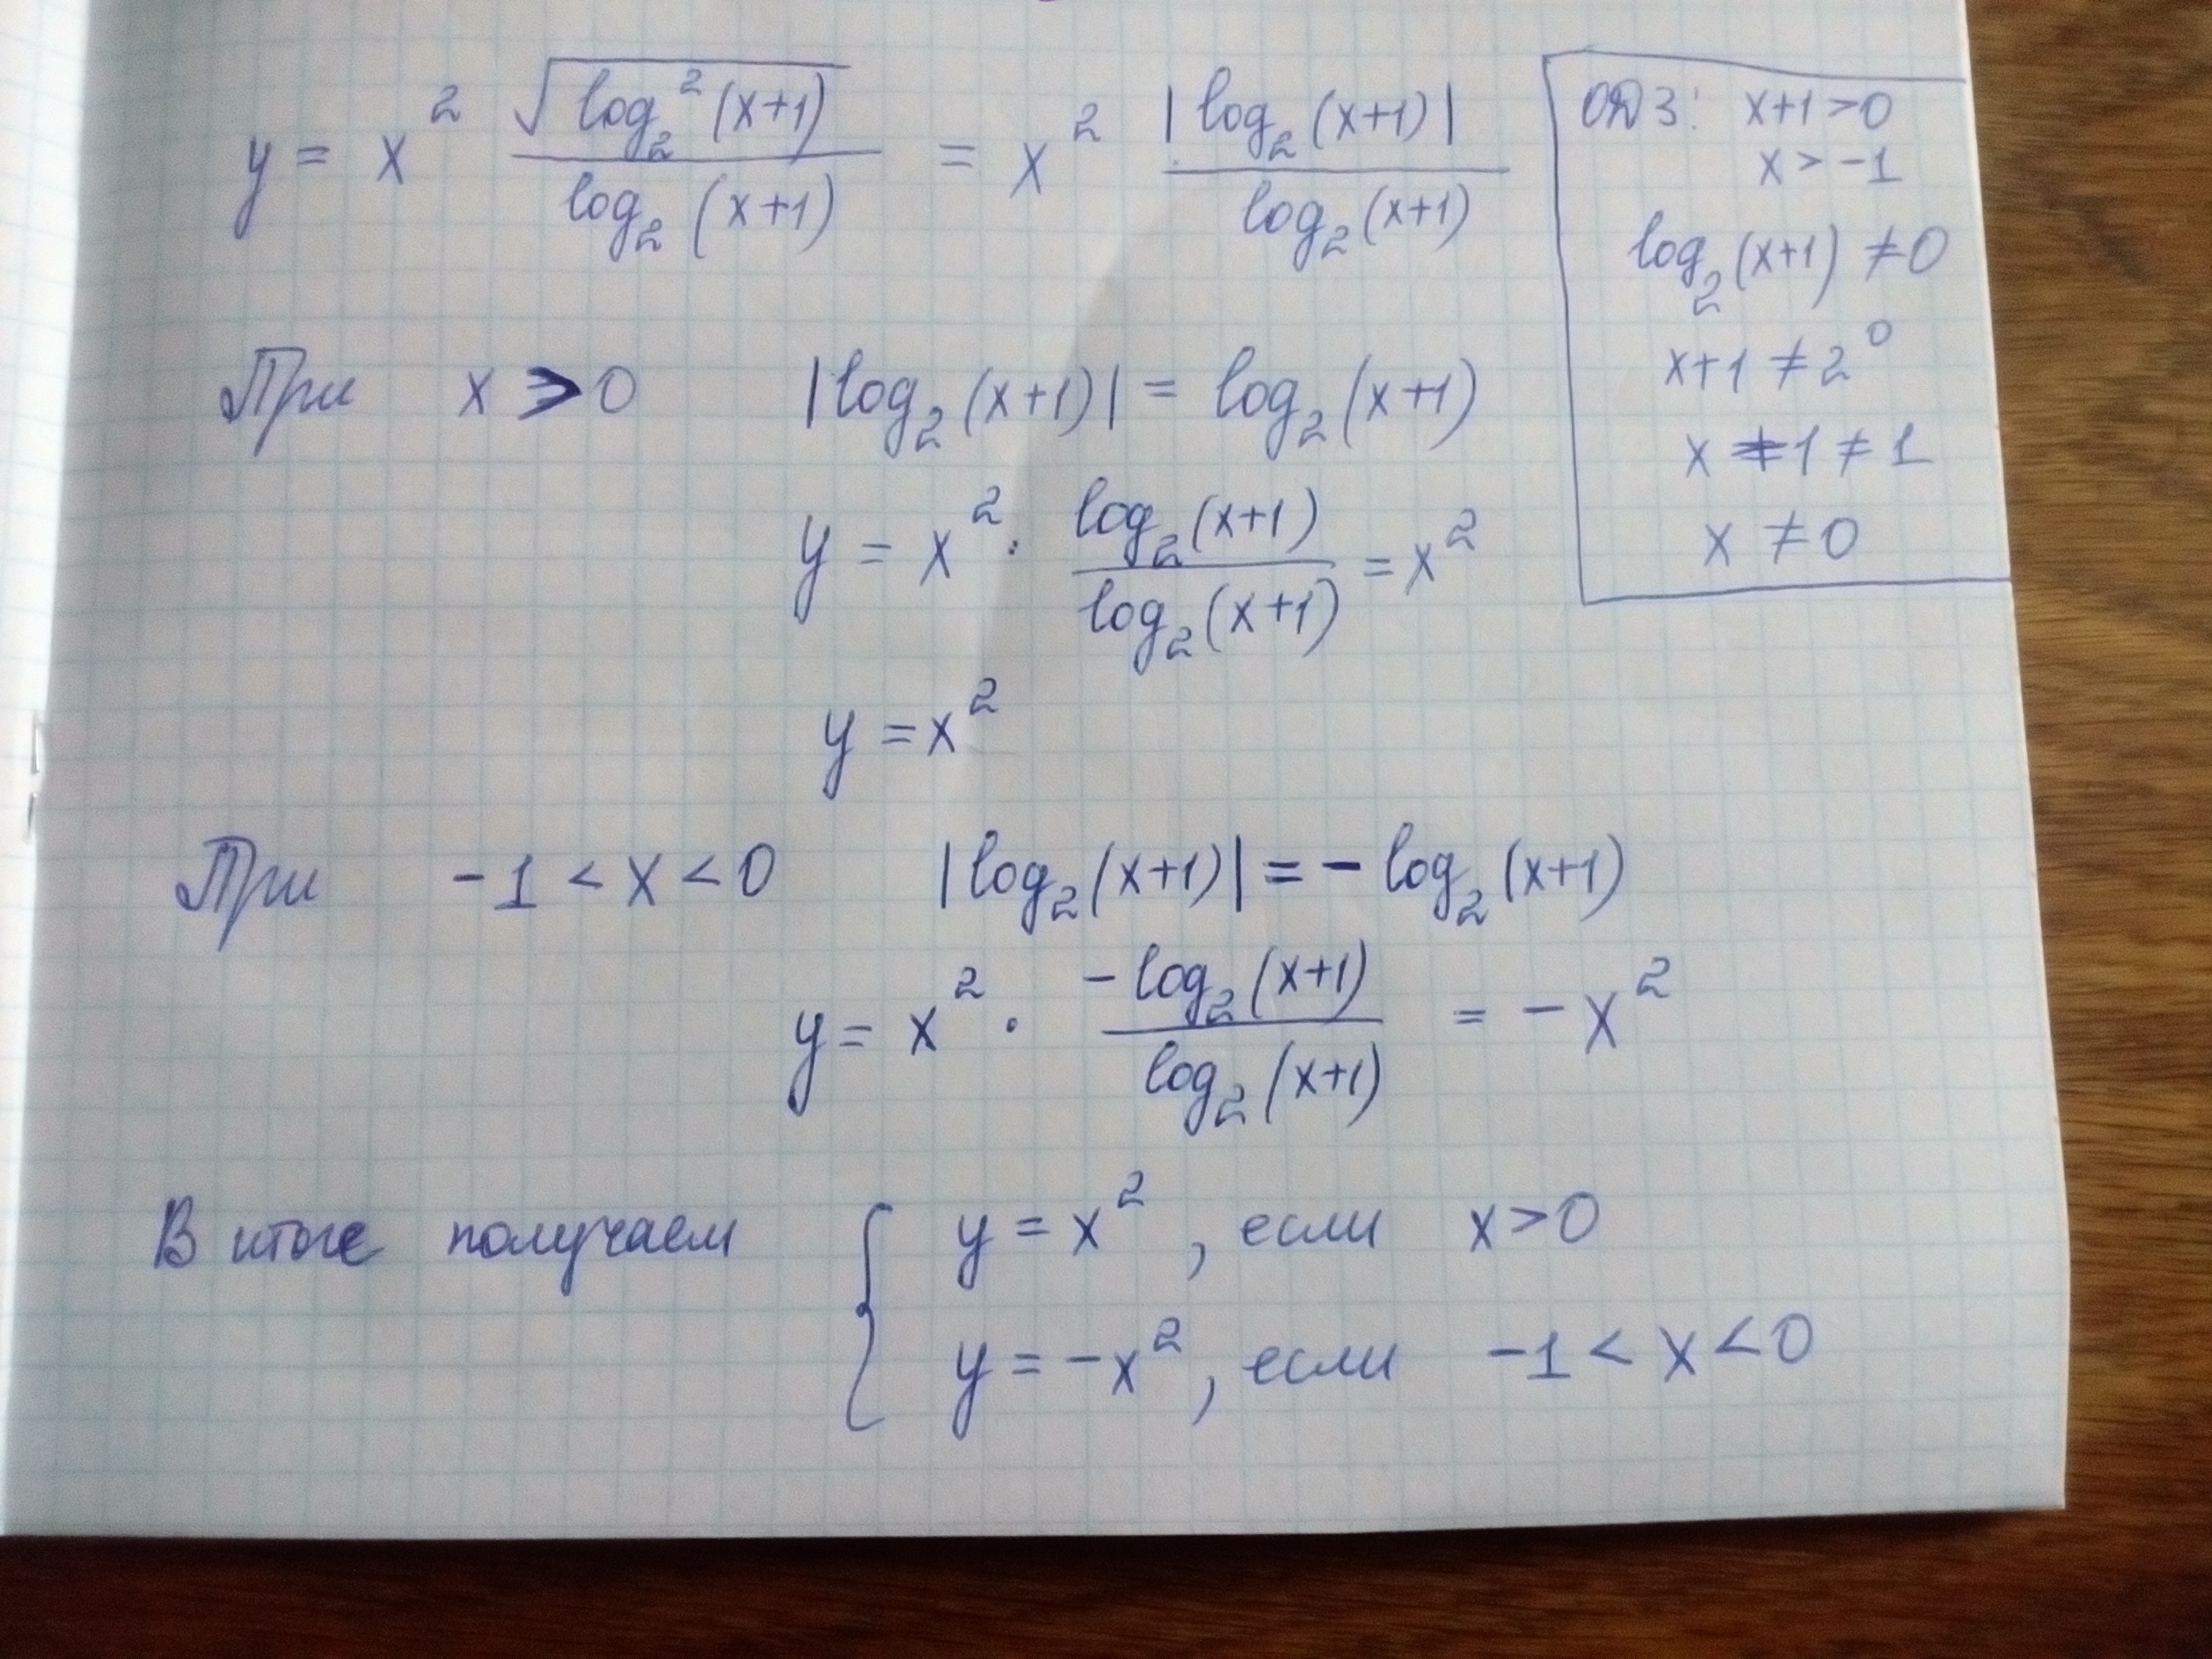 y = x² √(log₂²(x+1)) / log₂(x+1) = x² |log₂(x+1)| / log₂(x+1)
ОДЗ: x+1>0
x>-1
log₂(x+1) ≠ 0
x+1 ≠ 2⁰
x+1 ≠ 1
x ≠ 0
При x > 0 |log₂(x+1)| = log₂(x+1)
y = x² · log₂(x+1) / log₂(x+1) = x²
y = x²
При -1 < x < 0 |log₂(x+1)| = - log₂(x+1)
y = x² · -log₂(x+1) / log₂(x+1) = - x²
В итоге получаем { y = x², если x > 0
y = -x², если -1 < x < 0